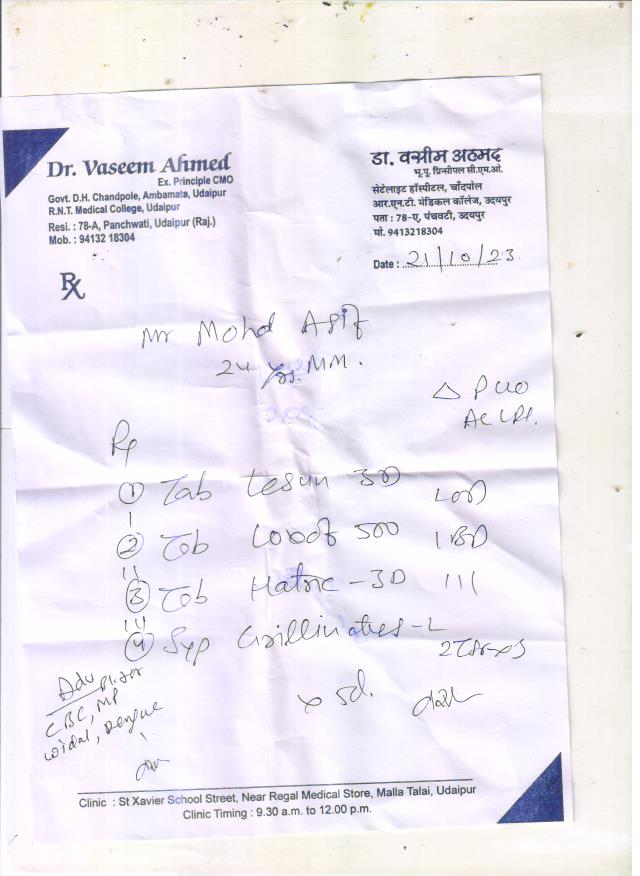 Dr. Vaseem Ahmed
Ex. Principle CMO
Govt. D.H. Chandpole, Ambamata, Udaipur
R.N.T. Medical College, Udaipur
Resi. : 78-A, Panchwati, Udaipur (Raj.)
Mob. : 94132 18304
डा. वसीम अहमद
भू.पू. प्रिन्सीपल सी.एम.ओ.
सेटेलाइट हॉस्पीटल, चाँदपोल
आर.एन.टी. मेडिकल कॉलेज, उदयपुर
पता : 78-ए, पंचवटी, उदयपुर
मो. 9413218304
Date : 21/10/23
Rx
Mr Mohd Asif
24 Yrs. MM.
△ PUO
Rp
① Tab 
② Tab 500
③ Tab Hatric - 3D 111
④ Syp - L
x 5d.
Adv
CBC, MP
widal, Dengue
Clinic : St Xavier School Street, Near Regal Medical Store, Malla Talai, Udaipur
Clinic Timing : 9.30 a.m. to 12.00 p.m.